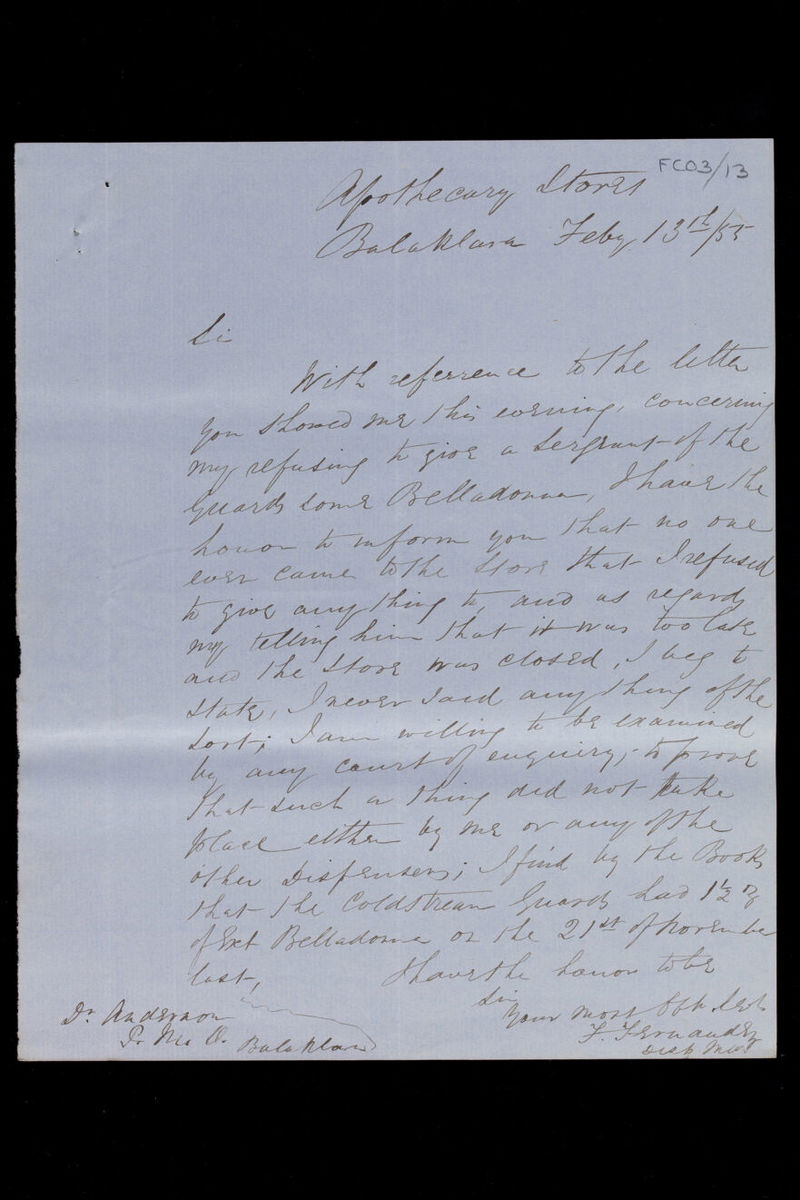 FCO3/13
Apothecary Stores
Balaklava Feby 13th/55
Sir
With reference to the letter
you showed me this evening, concerning
my refusing to give a Sergeant of the
Guards some Belladonna, I have the
honor to inform you that no one
ever came to the Store that I refused
to give any thing to, and as regards
my telling him that it was too late
and the Store was closed, I beg to
state, I never said any thing of the
sort; I am willing to be examined
by any court of enquiry; to prove
that such a thing did not take
place either by me or any of the
other Dispensers; I find by the Books
that the Coldstream Guards had 1½ ℥
of Ext Belladonna on the 21st of November
last,
I have the honor to be
Sir
Your most Obt
F. Fernandez
Dr Anderson
P. M. O. Balaklava